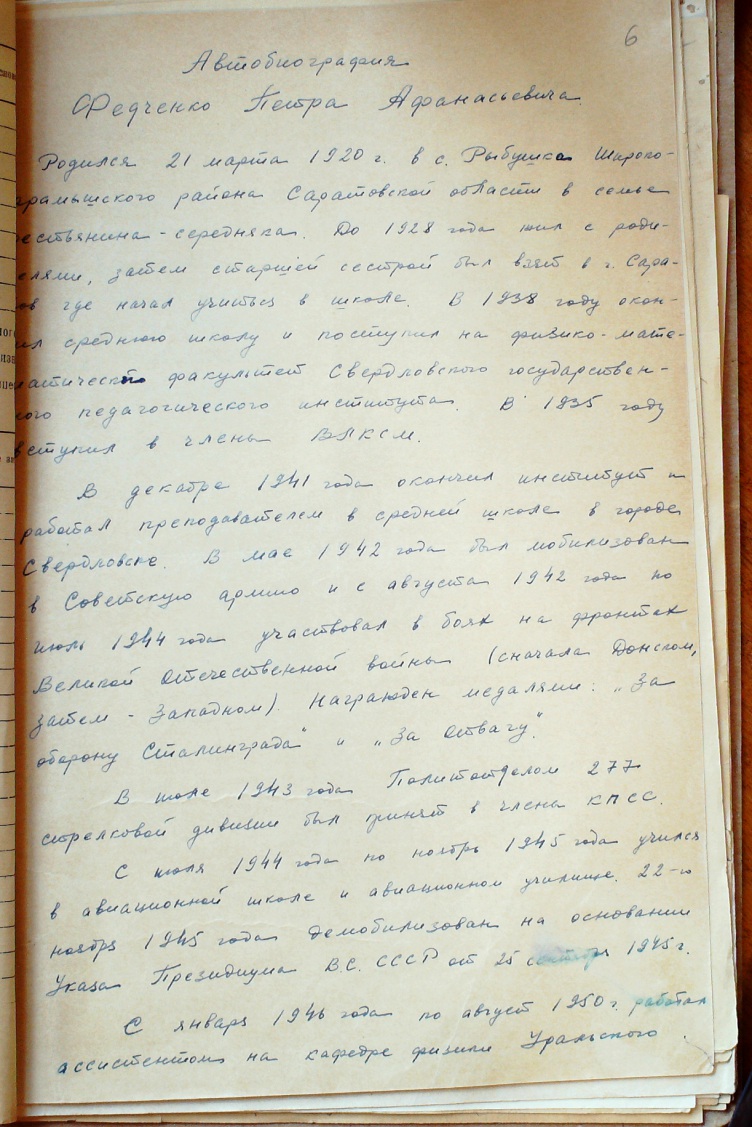 6
Автобиография
Федченко Петра Афанасьевича
Родился 21 марта 1920 г. в с. Рыбушка Широко-
арамышского района Саратовской области в семье
рестьянина-середняка. До 1928 года жил с роди-
елями, затем старшей сестрой был взят в г. Сара-
ов где начал учиться в школе. В 1938 году окон-
ил среднюю школу и поступил на физико-мате-
матический факультет Свердловского государствен-
ного педагогического института. В 1935 году
вступил в члены ВЛКСМ.
В декабре 1941 года окончил институт и
работал преподавателем в средней школе в городе
Свердловске. В мае 1942 года был мобилизован
в Советскую армию и с августа 1942 года по
июль 1944 года участвовал в боях на фронтах
Великой Отечественной войны (сначала Донском,
затем - Западном). Награжден медалями: „За
оборону Сталинграда" и „За отвагу".
В июле 1943 года Политотделом 277
стрелковой дивизии был принят в члены КПСС.
С июля 1944 года по ноябрь 1945 года учился
в авиационной школе и авиационном училище. 22-го
ноября 1945 года демобилизован на основании
Указа Президиума В.С. СССР от 25 сентября 1945 г.
С января 1946 года по август 1950 г. работал
ассистентом на кафедре физики Уральского